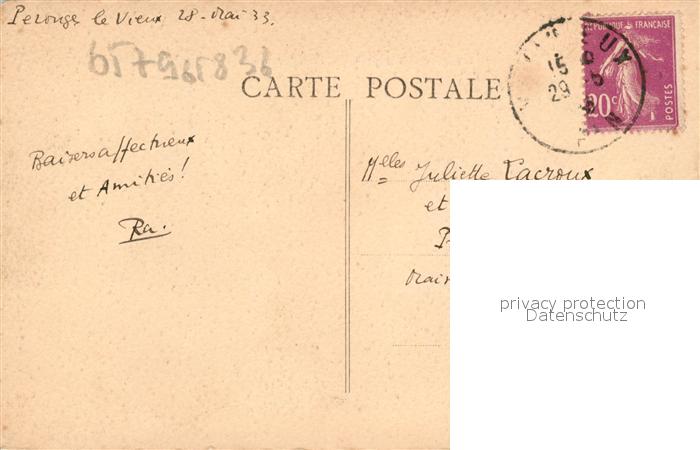 Perouge le Vieux 28 - Mai 33.
657965836
CARTE POSTALE
RÉPUBLIQUE FRANÇAISE
20c
POSTES
15
29
Baisers affectueux
et Amitiés!
Ra.
Melles Juliette Lacroux
et
privacy protection
Datenschutz